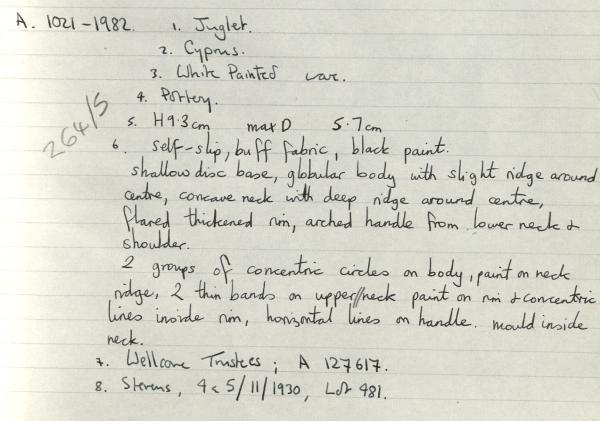 A. 1021-1982. 1. Juglet.
2. Cyprus.
3. White Painted ware.
4. Pottery.
5. H9.3cm max D 5.7cm
264/5
6. self-slip, buff fabric, black paint.
shallow disc base, globular body with slight ridge around
centre, concave neck with deep ridge around centre,
flared thickened rim, arched handle from lower neck &
shoulder.
2 groups of concentric circles on body, paint on neck
ridge, 2 thin bands on upper//neck paint on rim & concentric
lines inside rim, horizontal lines on handle. mould inside
neck.
7. Wellcome Trustees; A 127617.
8. Stevens, 4 & 5/11/1930, Lot 481.